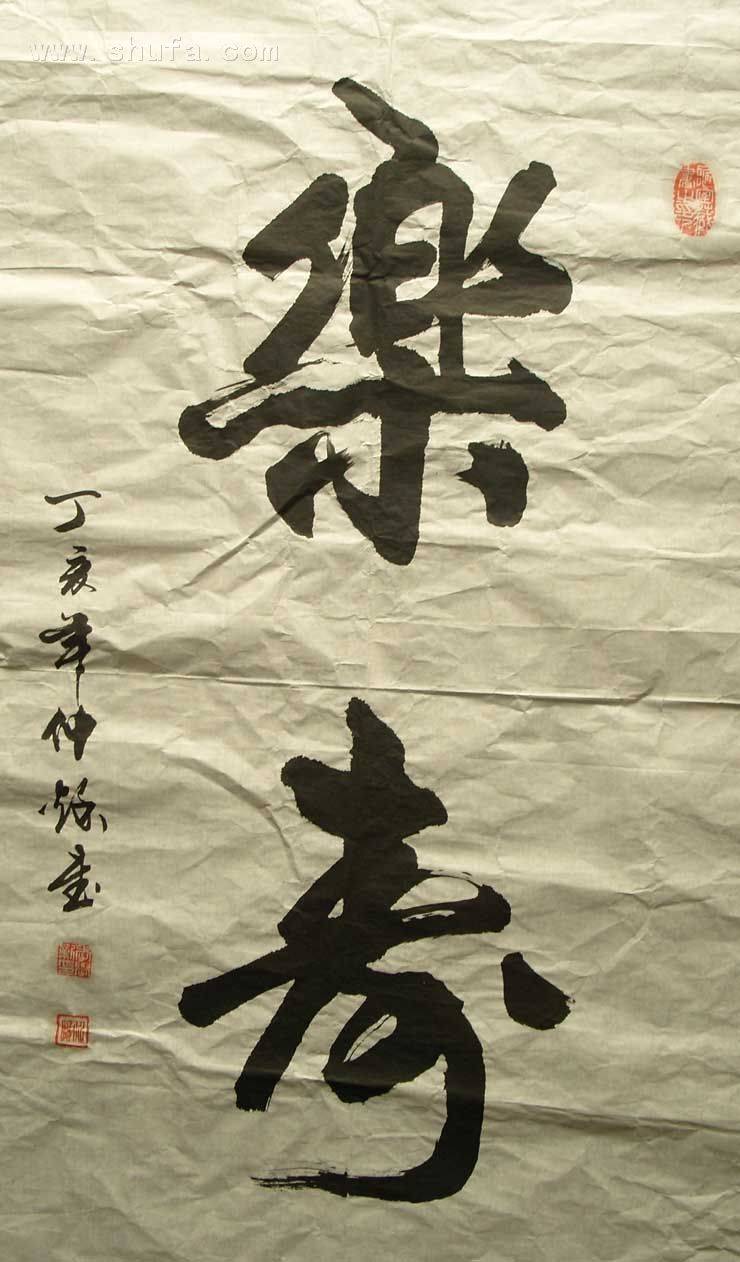 www.shufa.com
樂
寿
丁亥年仲